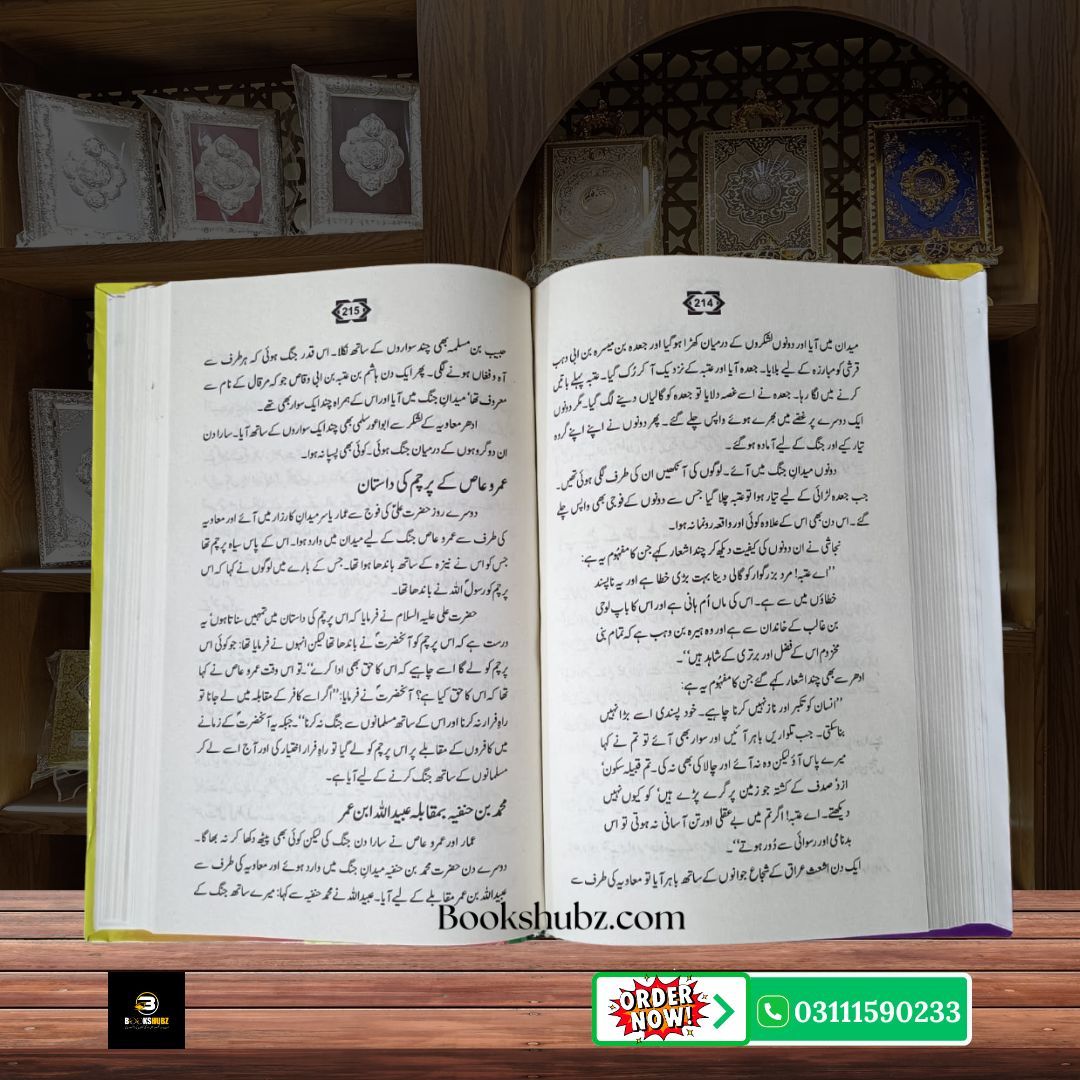 214
میدان میں آیا اور دونوں لشکروں کے درمیان کھڑا ہو گیا اور جعدہ بن میسرہ بن ابی وہب
قرشی کو مبارزہ کے لیے بلایا۔ جعدہ آیا اور عتبہ کے نزدیک آ کر رُک گیا۔ عتبہ پہلے باتیں
کرنے میں لگا رہا۔ جعدہ نے اسے غصہ دلایا تو جعدہ کو گالیاں دینے لگ گیا۔ مگر دونوں
ایک دوسرے پر غصے میں بھرے ہوئے واپس چلے گئے۔ پھر دونوں نے اپنے اپنے گروہ
تیار کیے اور جنگ کے لیے آمادہ ہو گئے۔
دونوں میدانِ جنگ میں آئے۔ لوگوں کی آنکھیں ان کی طرف لگی ہوئی تھیں۔
جب جعدہ لڑائی کے لیے تیار ہوا تو عتبہ چلا گیا جس سے دونوں کے فوجی بھی واپس چلے
گئے۔ اس دن بھی اس کے علاوہ کوئی اور واقعہ رونما نہ ہوا۔
نجاشی نے ان دونوں کی کیفیت دیکھ کر چند اشعار کہے جن کا مفہوم یہ ہے:
’’اے عتبہ! مرد بزرگوار کو گالی دینا بہت بڑی خطا ہے اور یہ ناپسند
خطاؤں میں سے ہے۔ اس کی ماں اُم ہانی ہے اور اس کا باپ لوی
بن غالب کے خاندان سے ہے اور وہ ہبیرہ بن وہب ہے کہ تمام بنی
مخزوم اس کے فضل اور برتری کے شاہد ہیں‘‘۔
ادھر سے بھی چند اشعار کہے گئے جن کا مفہوم یہ ہے:
’’انسان کو تکبر اور ناز نہیں کرنا چاہیے۔ خود پسندی اسے بڑا نہیں
بنا سکتی۔ جب تلواریں باہر آئیں اور سوار بھی آئے تو تم نے کہا
میرے پاس آؤ لیکن وہ نہ آئے اور چالاکی بھی نہ کی۔ تم قبیلہ سکون‘
ازد‘ صدف کے کشتہ جو زمین پر گرے پڑے ہیں‘ کو کیوں نہیں
دیکھتے۔ اے عتبہ! اگر تم میں بے عقلی اور تن آسانی نہ ہوتی تو اس
بدنامی اور رسوائی سے دُور ہوتے‘‘۔
ایک دن اشعث عراق کے شجاع جوانوں کے ساتھ باہر آیا تو معاویہ کی طرف سے
215
حبیب بن مسلمہ بھی چند سواروں کے ساتھ نکلا۔ اس قدر جنگ ہوئی کہ ہر طرف سے
آہ و فغاں ہونے لگی۔ پھر ایک دن ہاشم بن عتبہ بن ابی وقاص جو کہ مرقال کے نام سے
معروف تھا‘ میدانِ جنگ میں آیا اور اس کے ہمراہ چند ایک سوار بھی تھے۔
ادھر معاویہ کے لشکر سے ابواعور سلمی بھی چند ایک سواروں کے ساتھ آیا۔ سارا دن
ان دو گروہوں کے درمیان جنگ ہوئی۔ کوئی بھی پسپا نہ ہوا۔
عمرو عاص کے پرچم کی داستان
دوسرے روز حضرت علیؑ کی فوج سے عمار یاسر میدانِ کارزار میں آئے اور معاویہ
کی طرف سے عمرو عاص جنگ کے لیے میدان میں وارد ہوا۔ اس کے پاس سیاہ پرچم تھا
جس کو اس نے نیزہ کے ساتھ باندھا ہوا تھا۔ جس کے بارے میں لوگوں نے کہا کہ اس
پرچم کو رسولؐ اللہ نے باندھا تھا۔
حضرت علی علیہ السلام نے فرمایا کہ اس پرچم کی داستان میں تمہیں سناتا ہوں‘ یہ
درست ہے کہ اس پرچم کو آنحضرتؐ نے باندھا تھا لیکن انہوں نے فرمایا تھا: جو کوئی اس
پرچم کو لے گا اسے چاہیے کہ اس کا حق بھی ادا کرے‘‘۔ تو اس وقت عمرو عاص نے کہا
تھا کہ اس کا حق کیا ہے؟ آنحضرتؐ نے فرمایا: ’’اگر اسے کافر کے مقابلہ میں لے جانا تو
راہِ فرار نہ کرنا اور اس کے ساتھ مسلمانوں سے جنگ نہ کرنا‘‘۔ جبکہ یہ آنحضرتؐ کے زمانے
میں کافروں کے مقابلے پر اس پرچم کو لے گیا تو راہِ فرار اختیار کی اور آج اسے لے کر
مسلمانوں کے ساتھ جنگ کرنے کے لیے آیا ہے۔
محمد بن حنفیہ بمقابلہ عبید اللہ ابن عمر
عمار اور عمرو عاص نے سارا دن جنگ کی لیکن کوئی بھی پیٹھ دکھا کر نہ بھاگا۔
دوسرے دن حضرت محمد بن حنفیہ میدانِ جنگ میں وارد ہوئے اور معاویہ کی طرف سے
عبید اللہ بن عمر مقابلے کے لیے آیا۔ عبید اللہ نے محمد حنفیہ سے کہا: میرے ساتھ جنگ کے
Bookshubz.com
BOOKSHUBZ
ORDER NOW!
03111590233